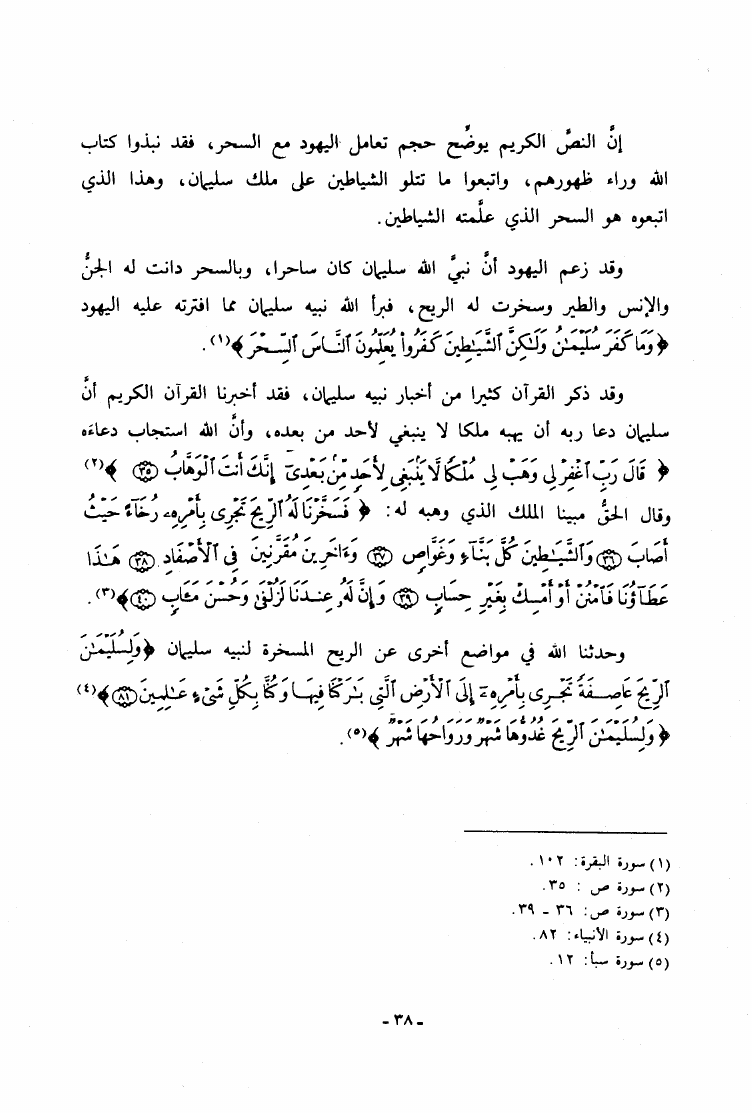 إنَّ النصَّ الكريم يوضِّح حجم تعامل اليهود مع السحر، فقد نبذوا كتاب
الله وراء ظهورهم، واتبعوا ما تتلو الشياطين على ملك سليمان، وهذا الذي
اتبعوه هو السحر الذي علَّمته الشياطين.
وقد زعم اليهود أنَّ نبيَّ الله سليمان كان ساحرا، وبالسحر دانت له الجنُّ
والإنس والطير وسخرت له الريح، فبرأ الله نبيه سليمان مما افترته عليه اليهود
﴿وَمَا كَفَرَ سُلَيْمَٰنُ وَلَٰكِنَّ ٱلشَّيَٰطِينَ كَفَرُوا۟ يُعَلِّمُونَ ٱلنَّاسَ ٱلسِّحْرَ﴾(١).
وقد ذكر القرآن كثيرا من أخبار نبيه سليمان، فقد أخبرنا القرآن الكريم أنَّ
سليمان دعا ربه أن يهبه ملكا لا ينبغي لأحد من بعده، وأنَّ الله استجاب دعاءه
﴿ قَالَ رَبِّ ٱغْفِرْ لِى وَهَبْ لِى مُلْكًا لَّا يَنۢبَغِى لِأَحَدٍ مِّنۢ بَعْدِىٓ إِنَّكَ أَنتَ ٱلْوَهَّابُ ۝٣٥ ﴾(٢)
وقال الحقُّ مبينا الملك الذي وهبه له: ﴿ فَسَخَّرْنَا لَهُ ٱلرِّيحَ تَجْرِى بِأَمْرِهِۦ رُخَآءً حَيْثُ
أَصَابَ ۝٣٦ وَٱلشَّيَٰطِينَ كُلَّ بَنَّآءٍ وَغَوَّاصٍ ۝٣٧ وَءَاخَرِينَ مُقَرَّنِينَ فِى ٱلْأَصْفَادِ ۝٣٨ هَٰذَا
عَطَآؤُنَا فَٱمْنُنْ أَوْ أَمْسِكْ بِغَيْرِ حِسَابٍ ۝٣٩ وَإِنَّ لَهُۥ عِندَنَا لَزُلْفَىٰ وَحُسْنَ مَـَٔابٍ ۝٤٠﴾(٣).
وحدثنا الله في مواضع أخرى عن الريح المسخرة لنبيه سليمان ﴿وَلِسُلَيْمَٰنَ
ٱلرِّيحَ عَاصِفَةً تَجْرِى بِأَمْرِهِۦٓ إِلَى ٱلْأَرْضِ ٱلَّتِى بَٰرَكْنَا فِيهَا وَكُنَّا بِكُلِّ شَىْءٍ عَٰلِمِينَ ۝٨١﴾(٤)
﴿ وَلِسُلَيْمَٰنَ ٱلرِّيحَ غُدُوُّهَا شَهْرٌ وَرَوَاحُهَا شَهْرٌ ﴾(٥).
(١) سورة البقرة: ١٠٢.
(٢) سورة ص : ٣٥.
(٣) سورة ص: ٣٦ - ٣٩.
(٤) سورة الأنبياء: ٨٢.
(٥) سورة سبأ: ١٢.
- ٣٨ -